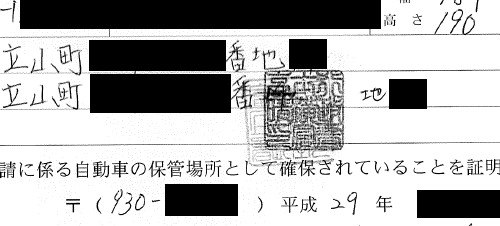 高さ 190
立山町 番地
立山町 番 地
請に係る自動車の保管場所として確保されていることを証明
〒(930- ) 平成 29 年